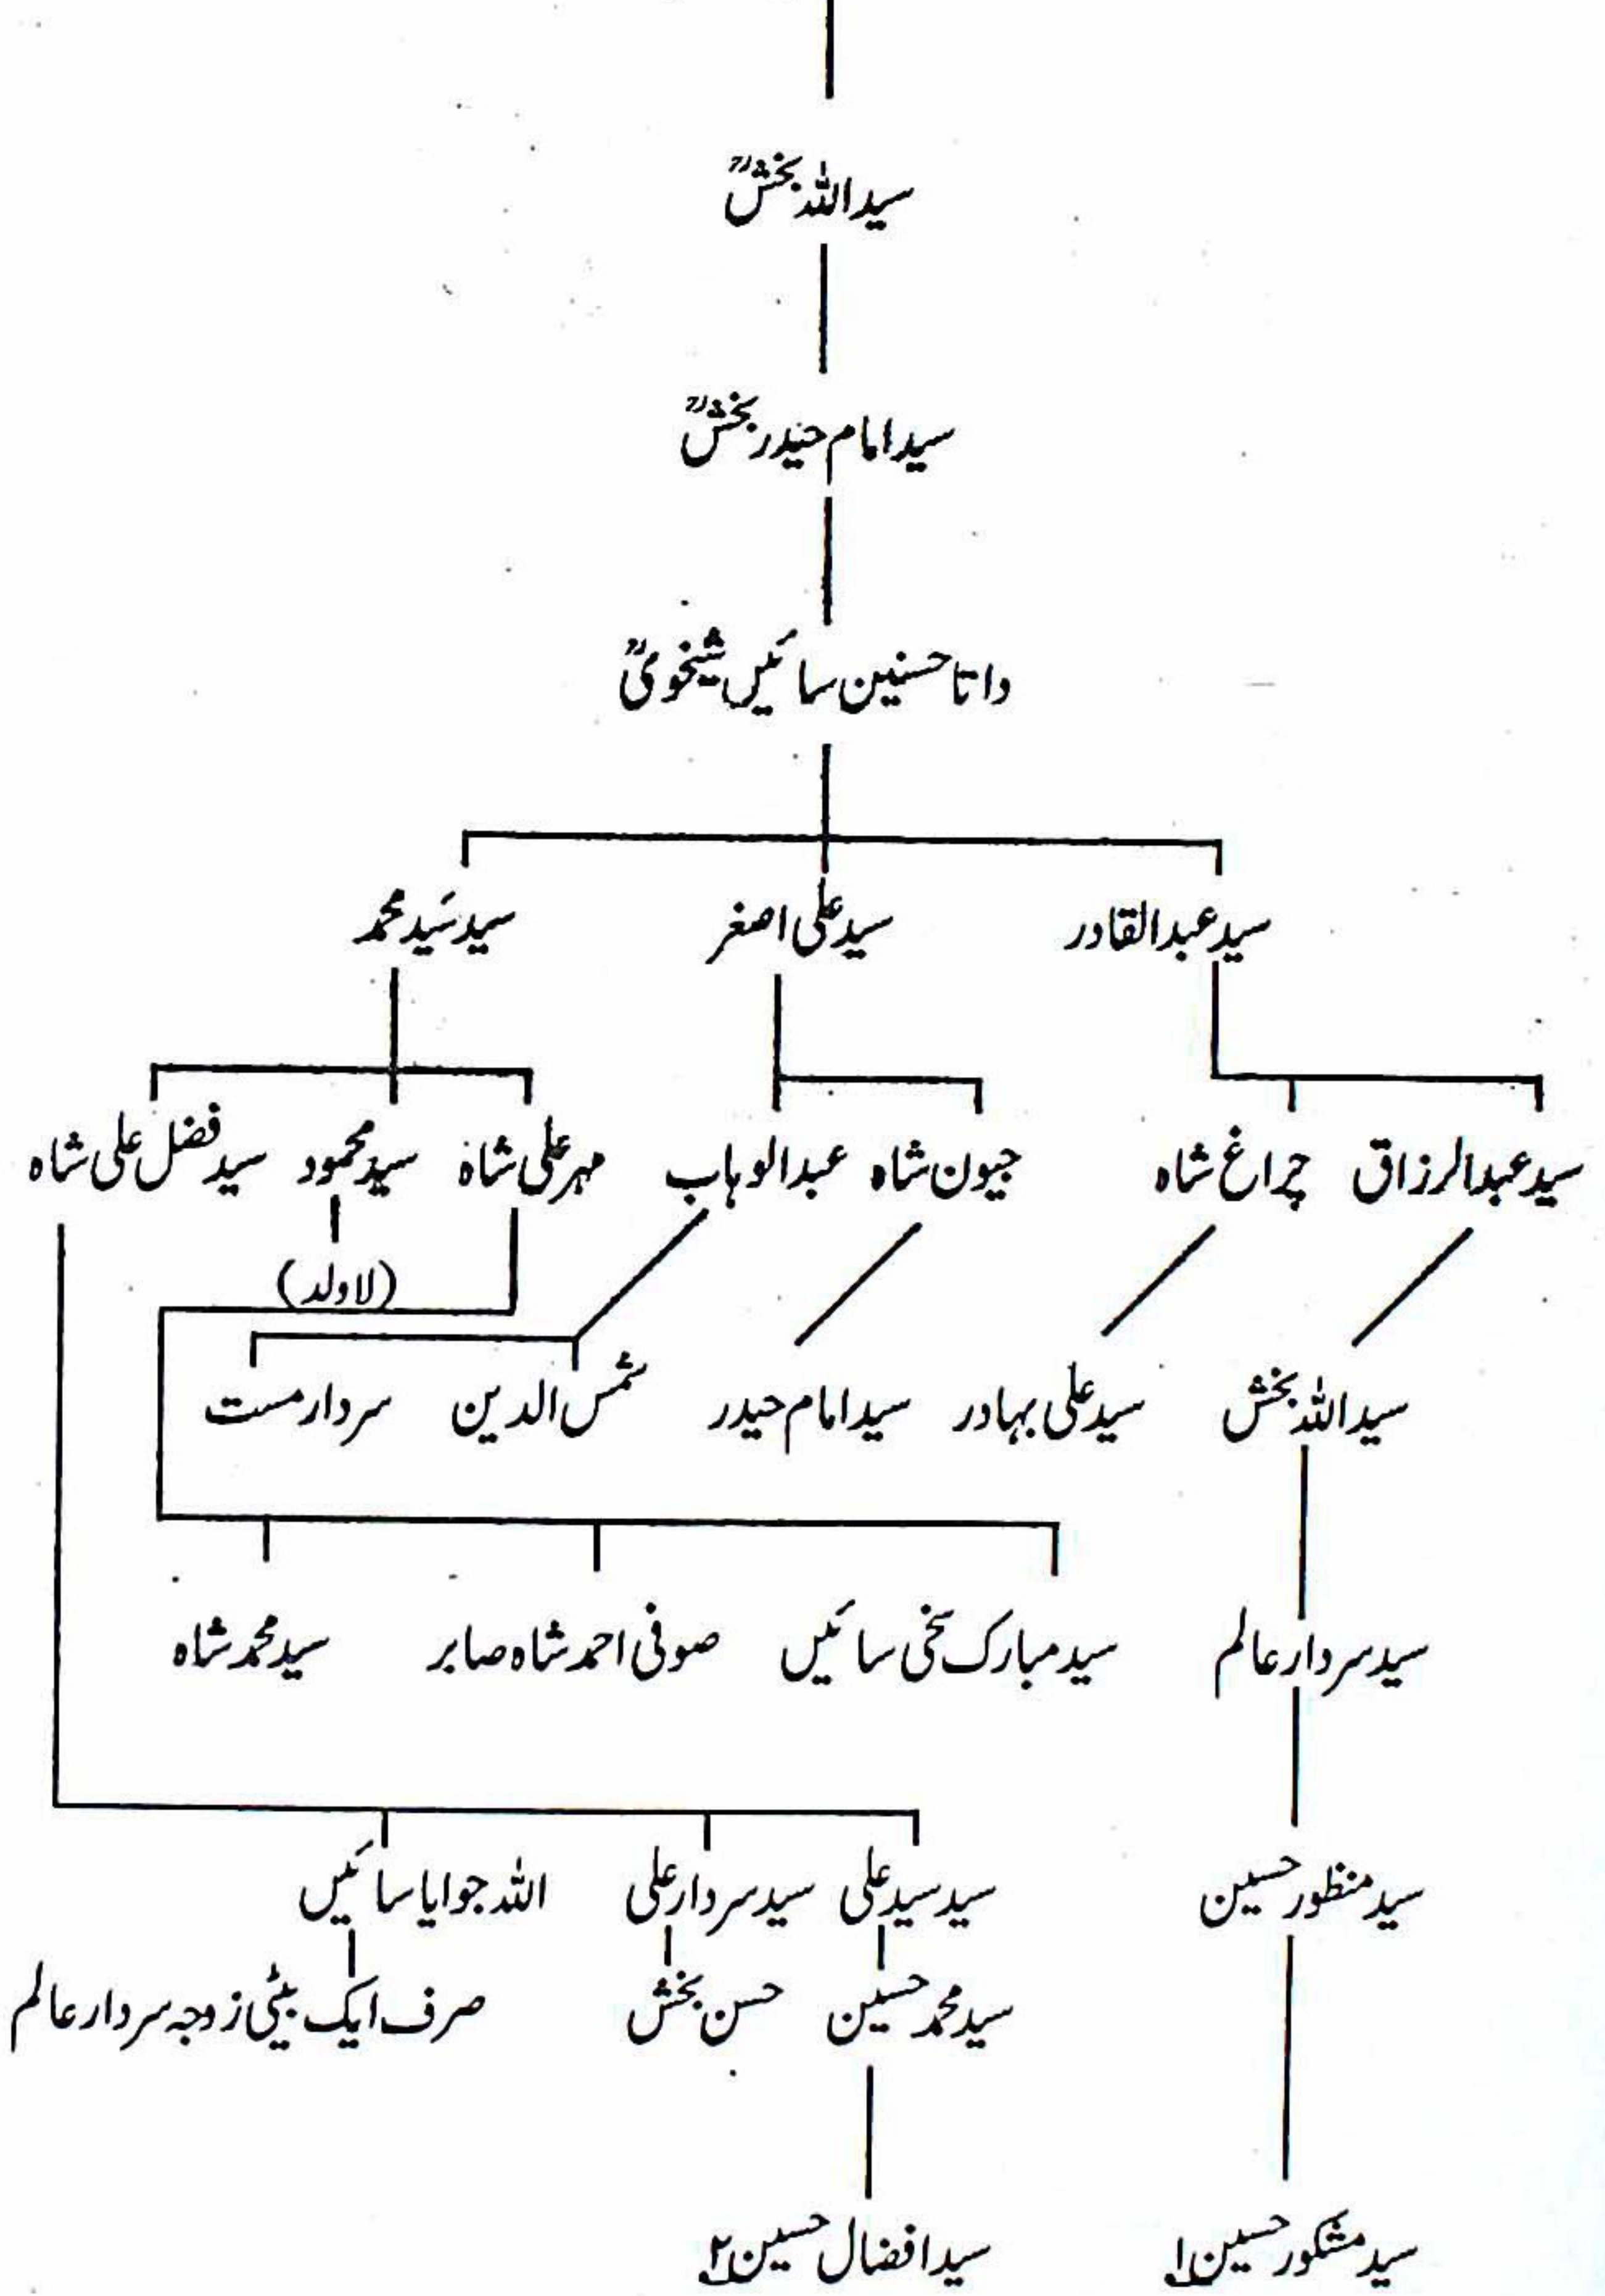 سید اللہ بخشؒ
سید امام حیدر بخشؒ
داتا حسنین سائیں شیخویؒ
سید عبدالقادر سید علی اصغر سید سَید محمد
سید عبدالرزاق چراغ شاہ جیون شاہ عبدالوہاب مہر علی شاہ سید محمود سید فضل علی شاہ
(لاولد)
سید اللہ بخش سید علی بہادر سید امام حیدر شمس الدین سردار مست
سید سردار عالم سید مبارک سخی سائیں صوفی احمد شاہ صابر سید محمد شاہ
سید منظور حسین سید سید علی سید سردار علی اللہ جوایا سائیں
سید محمد حسین حسن بخش صرف ایک بیٹی زوجہ سردار عالم
سید مشکور حسین ۱ سید افضال حسین ۲